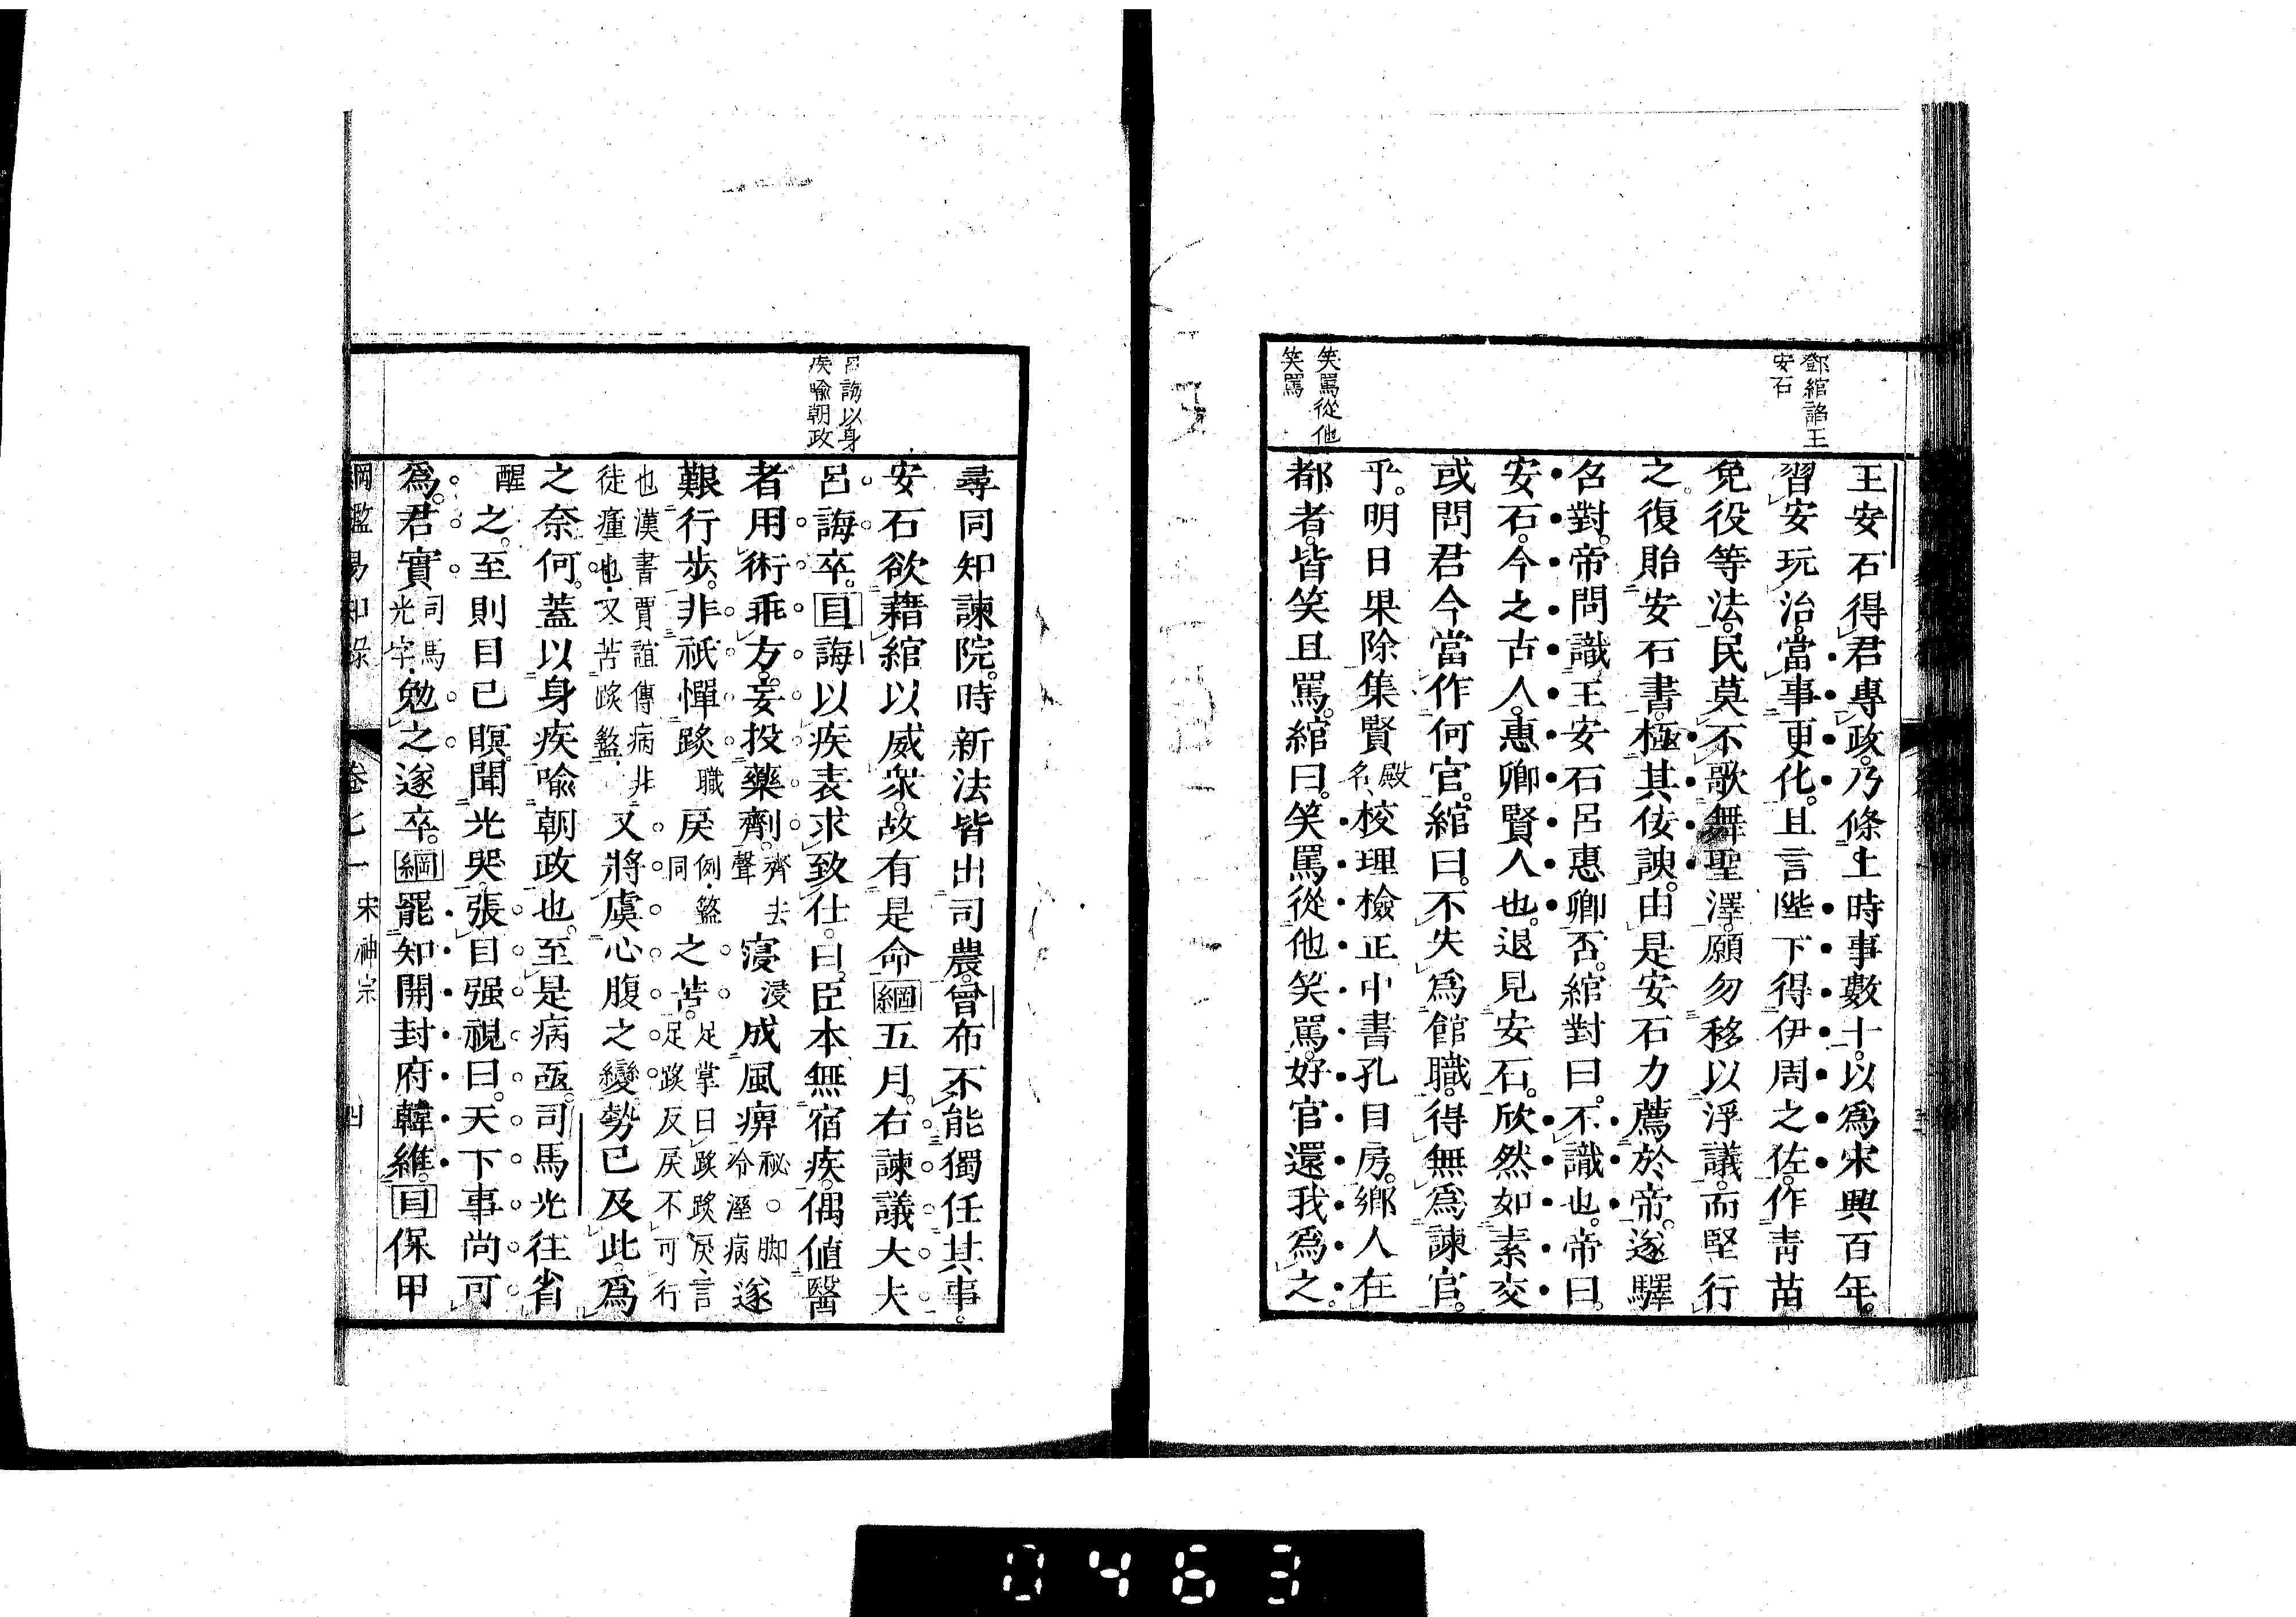 鄧綰諂王
安石
王安石得君專政。乃條上時事數十。以爲宋興百年。
習安玩治。當事更化。且言陛下得伊周之佐。作靑苗
免役等法。民莫不歌舞聖澤。願勿移以浮議。而堅行
之。復貽安石書。極其佞諛。由是安石力薦於帝。遂驛
名對。帝問識王安石呂惠卿否。綰對曰。不識也。帝曰。
安石。今之古人。惠卿賢人也。退見安石。欣然如素交
或問君今當作何官。綰曰。不失爲館職。得無爲諫官
乎。明日果除集賢殿名校理檢正中書孔目房。鄉人在
都者。皆笑且罵。綰曰。笑罵從他笑罵。好官還我爲之。
笑罵從他
笑罵
呂誨以身
疾喩朝政
尋同知諫院。時新法皆出司農。曾布不能獨任其事。
安石欲藉綰以威衆。故有是命綱五月。右諫議大夫
呂誨卒。目誨以疾表求致仕。曰。臣本無宿疾。偶値醫
者用術乖方。妄投藥劑。齊去聲寖浸成風痹祕。脚冷溼病遂
艱行步。非祇憚䟦職戾例盭同之苦。足掌曰䟦䟦戾、言足䟦反戾不可行
也漢書賈誼傳病非徒瘇也、又苦䟦盭、又將虞心腹之變勢已及此。爲
之奈何。蓋以身疾喩朝政也。至是病亟。司馬光往省
醒之。至則目已瞑。聞光哭。張目强視曰。天下事尚可
爲。君實司馬光字、勉之遂卒。綱罷知開封府韓維。目保甲
綱鑑易知錄 卷七一 宋神宗 四
0463